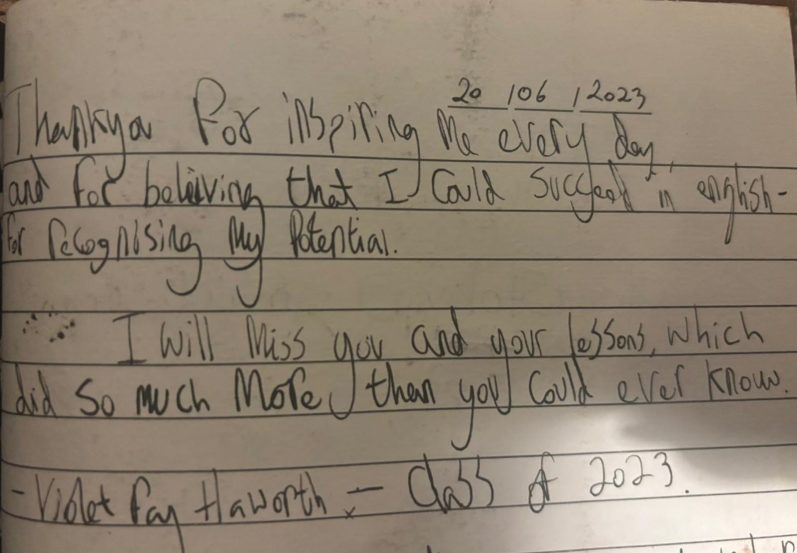 20/06/2023
Thankyou for inspiring me every day,
and for believing that I could succeed in english-
for recognising my potential.
I will miss you and your lessons, which
did so much more, than you could ever know.
- Violet Fay Haworth - Class of 2023.